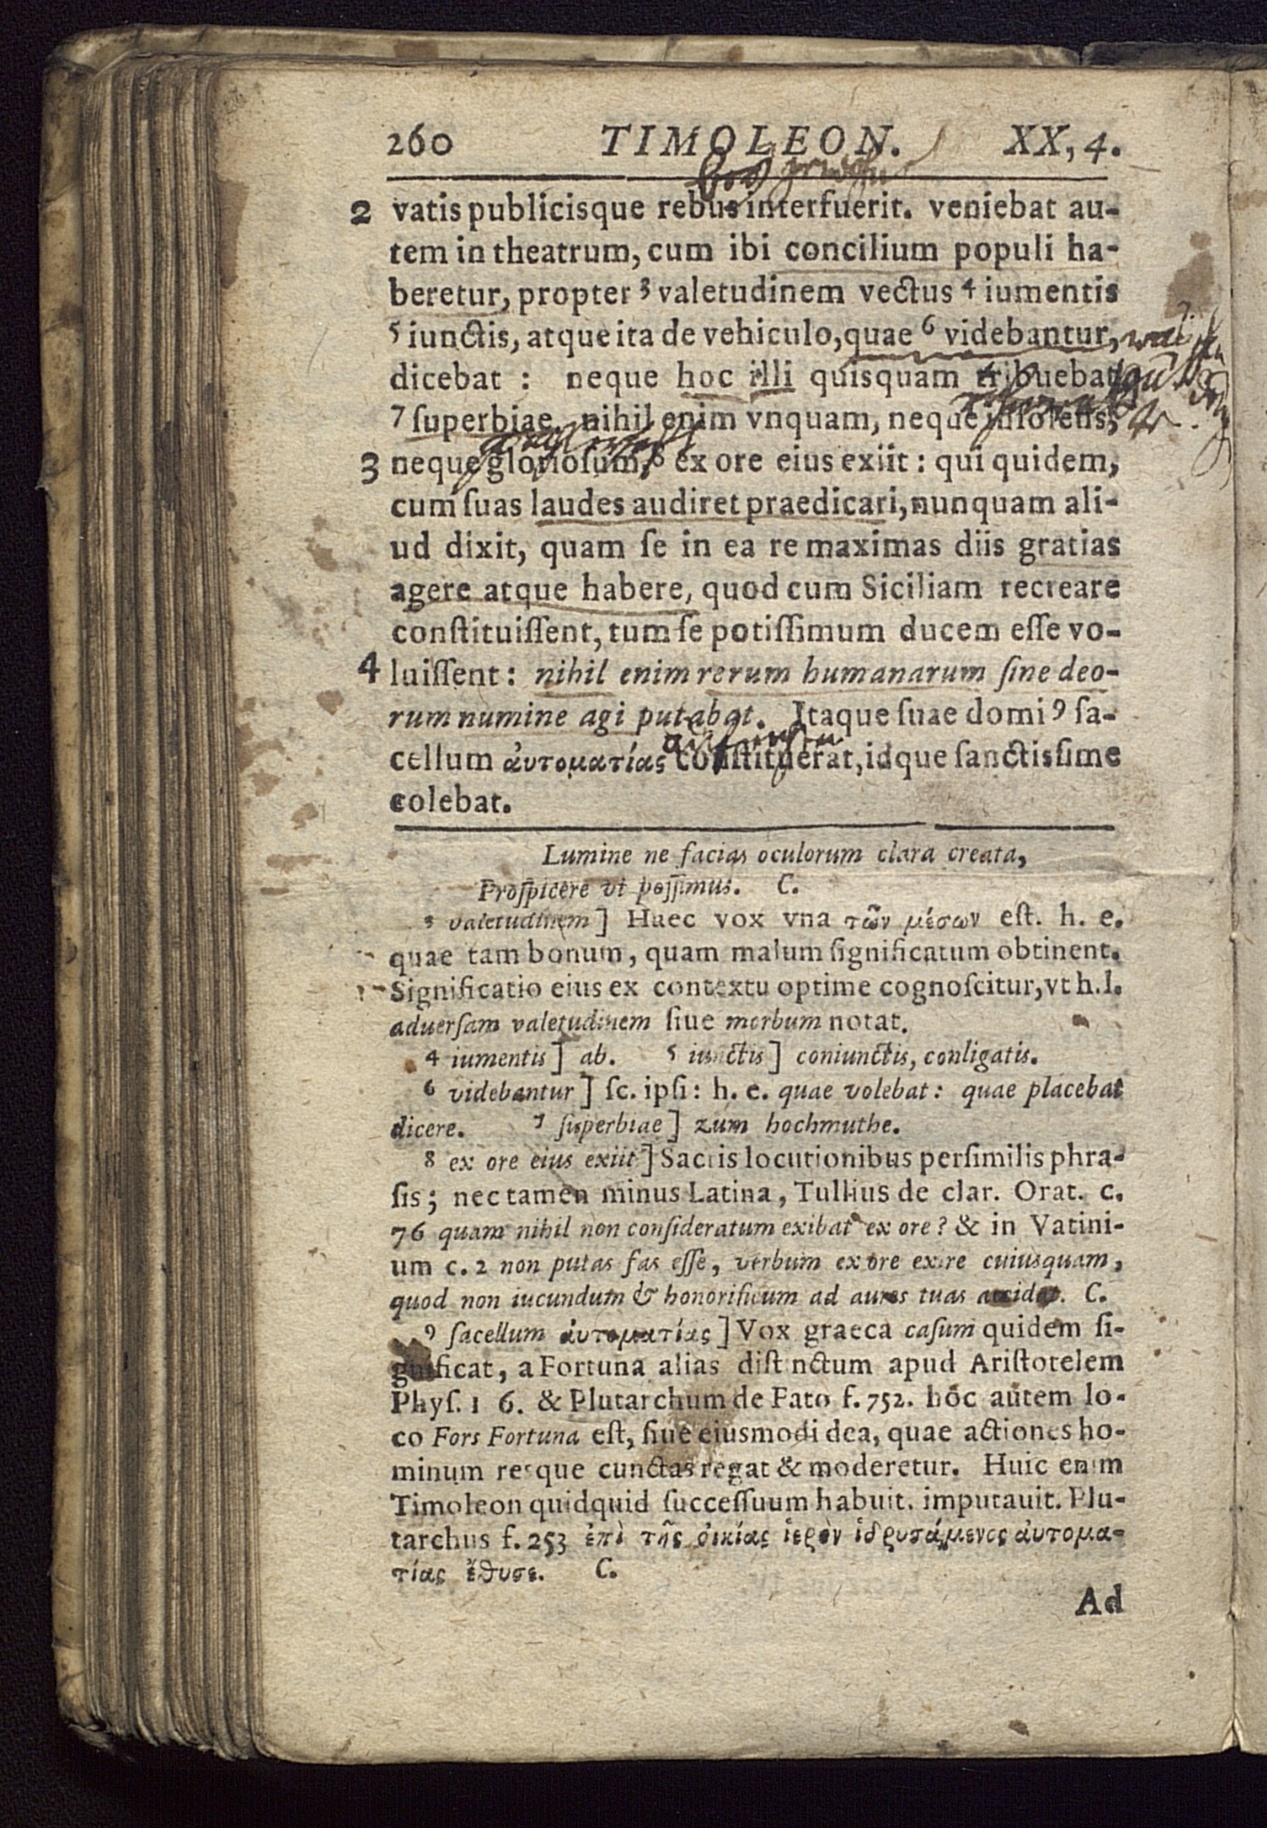 260 TIMOLEON. XX, 4.
2 vatis publicisque rebus interfuerit. veniebat au-
tem in theatrum, cum ibi concilium populi ha-
beretur, propter ³ valetudinem vectus ⁴ iumentis
⁵ iunctis, atque ita de vehiculo, quae ⁶ videbantur,
dicebat : neque hoc illi quisquam tribuebat
⁷ ſuperbiae. nihil enim vnquam, neque inſolens,
3 neque glorioſum, ⁸ ex ore eius exiit : qui quidem,
cum ſuas laudes audiret praedicari, nunquam ali-
ud dixit, quam ſe in ea re maximas diis gratias
agere atque habere, quod cum Siciliam recreare
conſtituiſſent, tum ſe potiſſimum ducem eſſe vo-
4 luiſſent : nihil enim rerum humanarum ſine deo-
rum numine agi putabat. Itaque ſuae domi ⁹ ſa-
cellum ἀυτοματίας conſtituerat, idque ſanctissime
colebat.
Lumine ne facias oculorum clara creata,
Proſpicere vt poſſimus. C.
³ valetudinem] Haec vox vna τῶν μέσων eſt. h. e.
quae tam bonum, quam malum ſignificatum obtinent.
Significatio eius ex contextu optime cognoſcitur, vt h. l.
aduerſam valetudinem ſiue morbum notat.
⁴ iumentis] ab. ⁵ iunctis] coniunctis, conligatis.
⁶ videbantur] ſc. ipſi : h. e. quae volebat : quae placebat
dicere. ⁷ ſuperbiae] zum hochmuthe.
⁸ ex ore eius exiit] Sacris locutionibus perſimilis phra-
ſis ; nec tamen minus Latina, Tullius de clar. Orat. c.
76 quam nihil non conſideratum exibat ex ore ? & in Vatini-
um c. 2 non putas fas eſſe, verbum ex ore exire cuiusquam,
quod non iucundum & honorificum ad aures tuas accidat. C.
⁹ ſacellum ἀυτοματίας] Vox graeca caſum quidem ſi-
gnificat, a Fortuna alias diſtinctum apud Ariſtotelem
Phyſ. 1 6. & Plutarchum de Fato f. 752. hoc autem lo-
co Fors Fortuna eſt, ſiue eiusmodi dea, quae actiones ho-
minum resque cunctas regat & moderetur. Huic enim
Timoleon quidquid ſucceſſuum habuit. imputauit. Plu-
tarchus f. 253 ἐπὶ τῆς ὀικίας ἱερὸν ἱδρυσάμενος ἀυτομα-
τίας ἔθυσε. C.
Ad